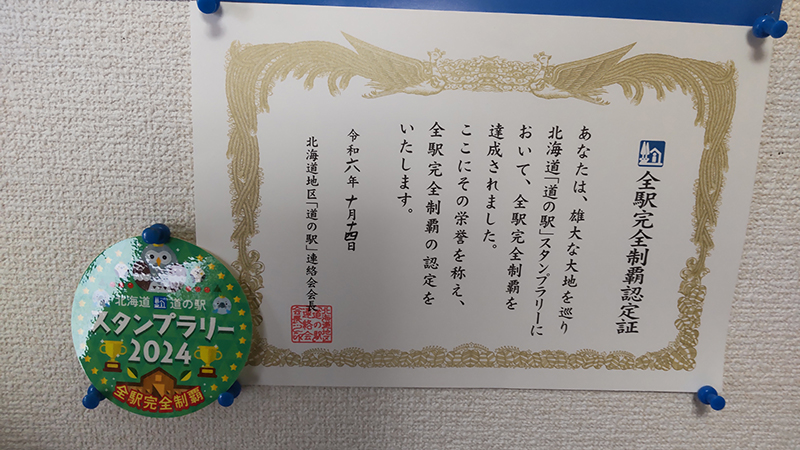 全駅完全制覇認定証
あなたは、雄大な大地を巡り
北海道「道の駅」スタンプラリーに
おいて、全駅完全制覇を
達成されました。
ここにその栄誉を称え、
全駅完全制覇の認定を
いたします。
令和六年 十月十四日
北海道地区「道の駅」連絡会会長
北海道 道の駅
スタンプラリー
2024
全駅完全制覇